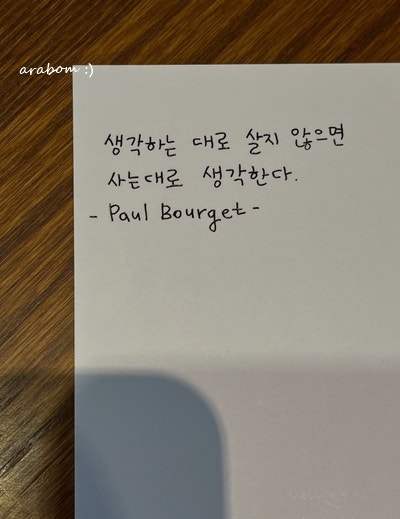 arabom :)
생각하는 대로 살지 않으면
사는대로 생각한다.
- Paul Bourget -